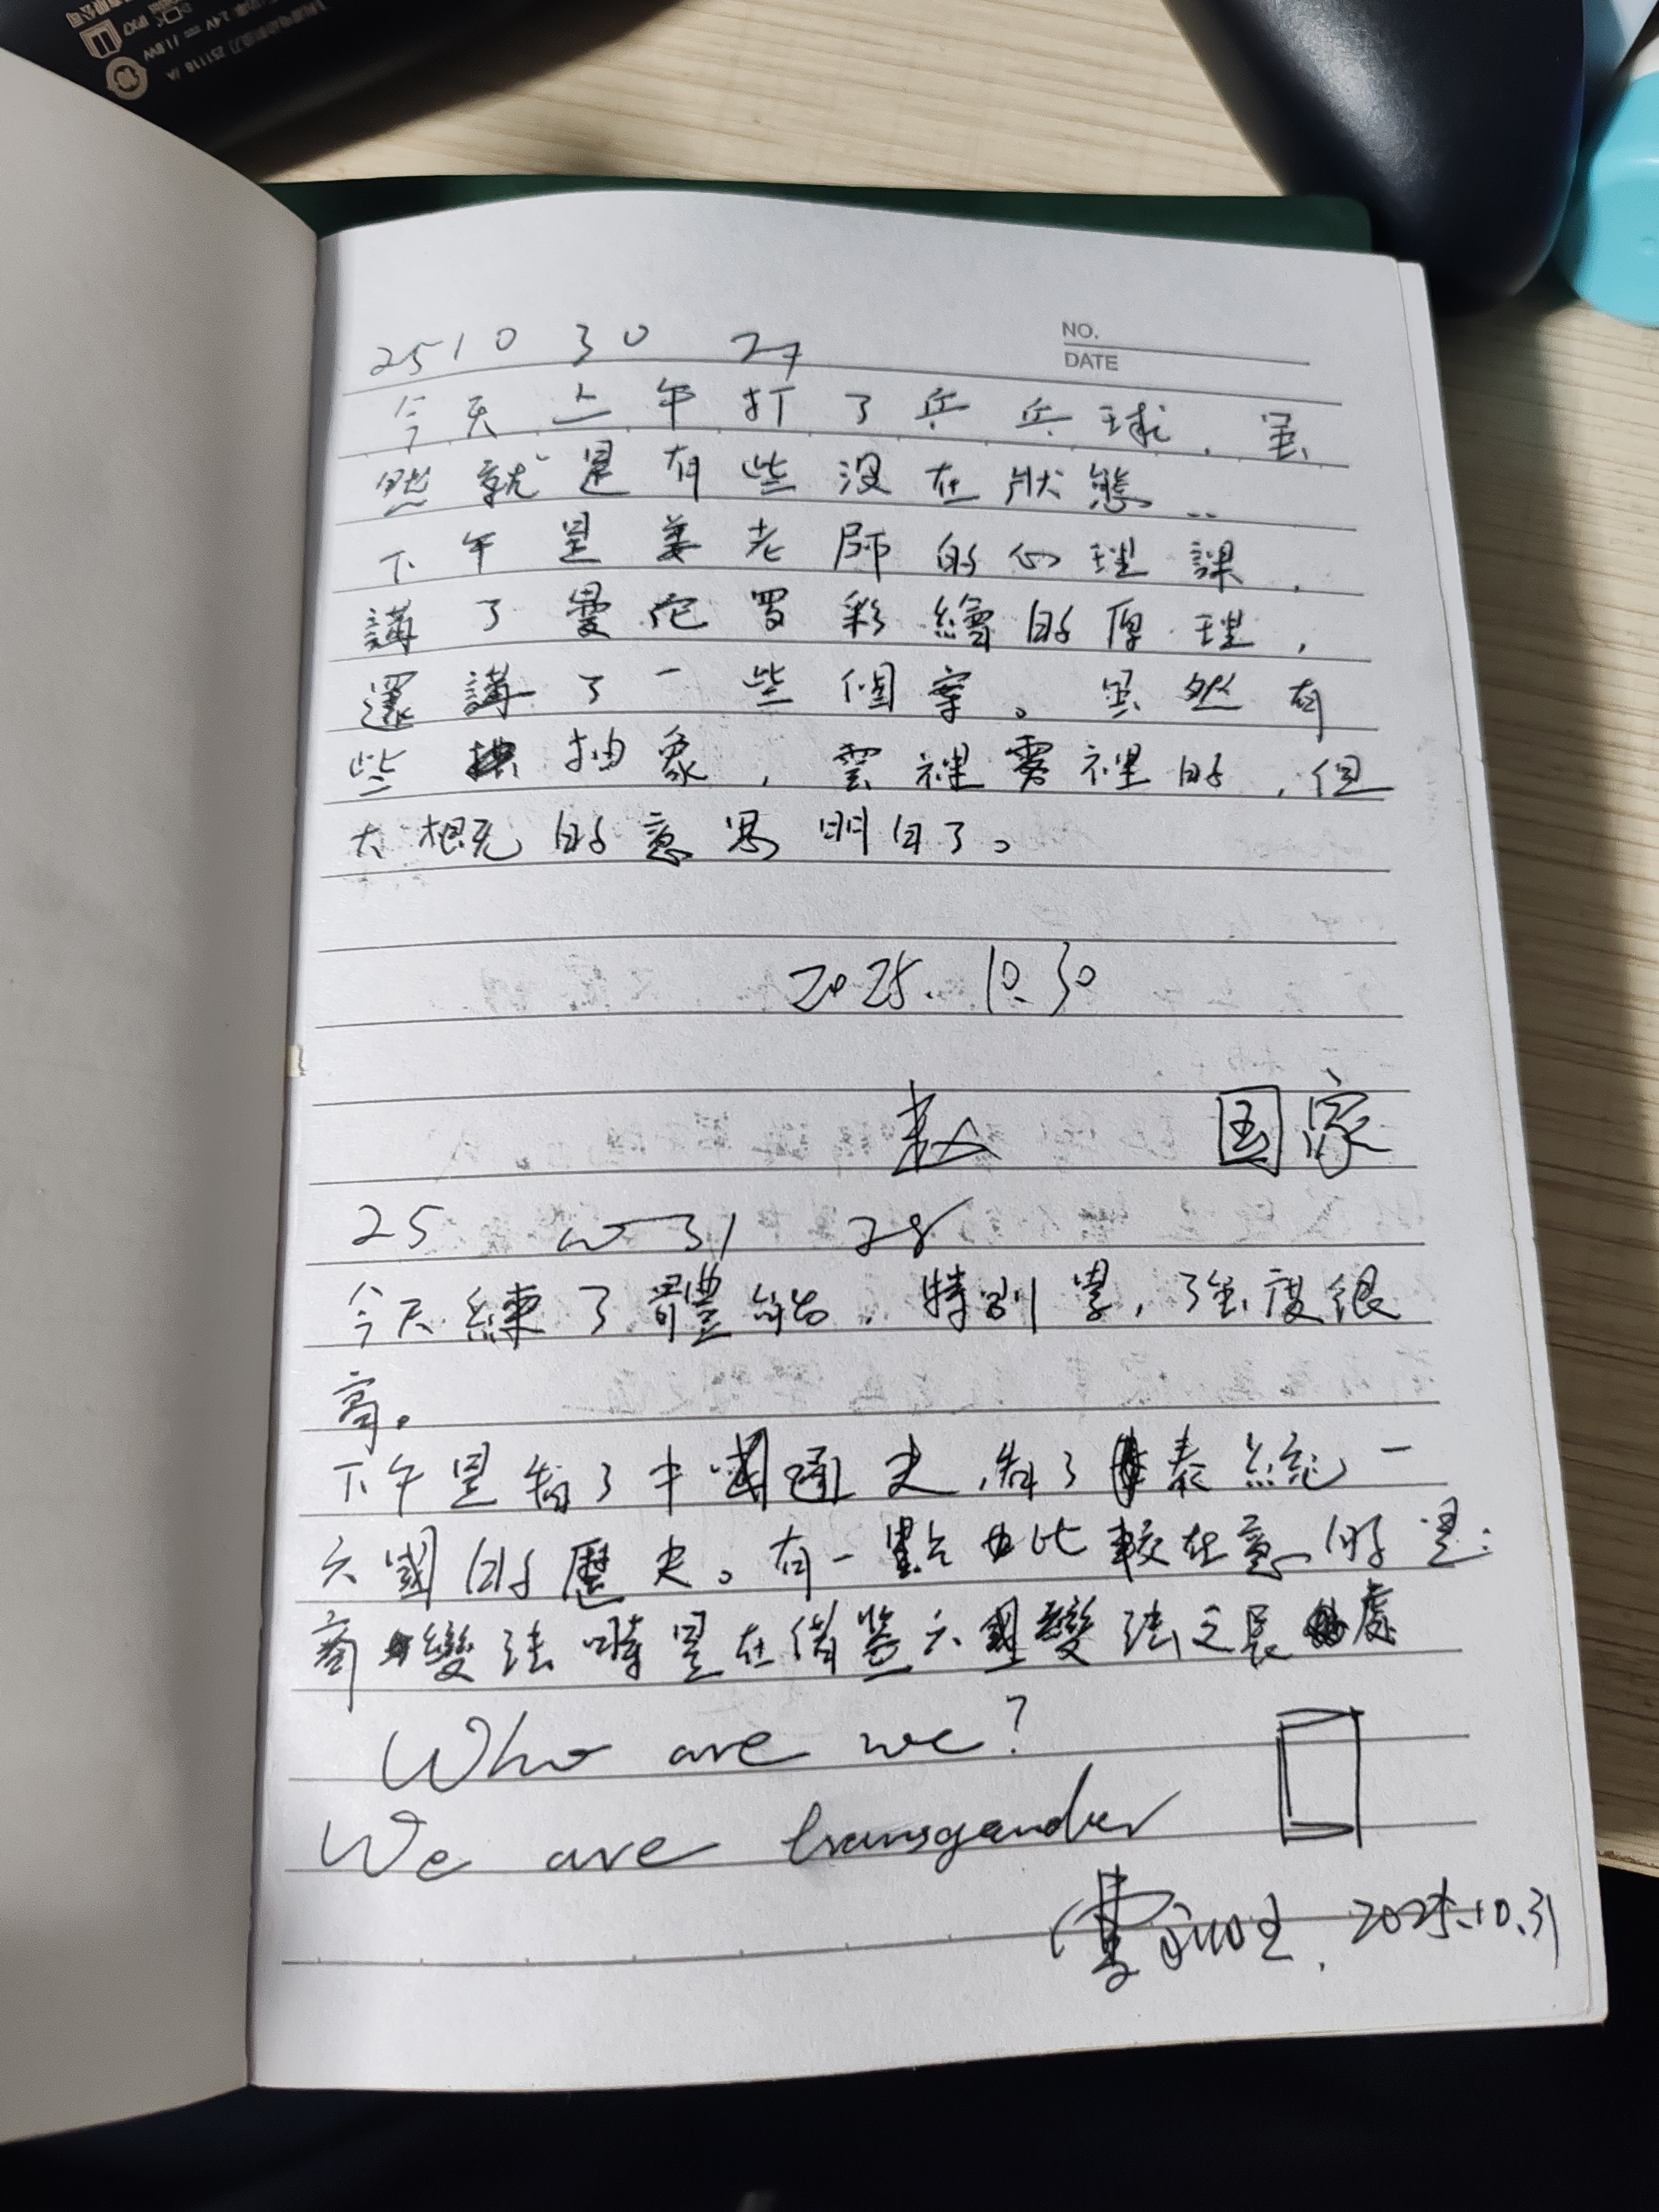 NO.
DATE
25 10 30 27
今天上午打了乒乓球，虽
然就是有些没在狀態..
下午是姜老師的心理課，
講了曼陀罗彩繪的原理，
還講了一些個案。虽然有
些抽象，雲裡雾裡的，但
大概的意思明白了。
2025.10.30
赵 国家
25 10 31 28
今天練了體能，特别累，强度很
高。
下午是看了中國通史，看了秦統一
六國的歷史。有一點比較在意的是：
商變法時是在借鉴六國變法之長處
Who are we?
We are transgender
2025.10.31